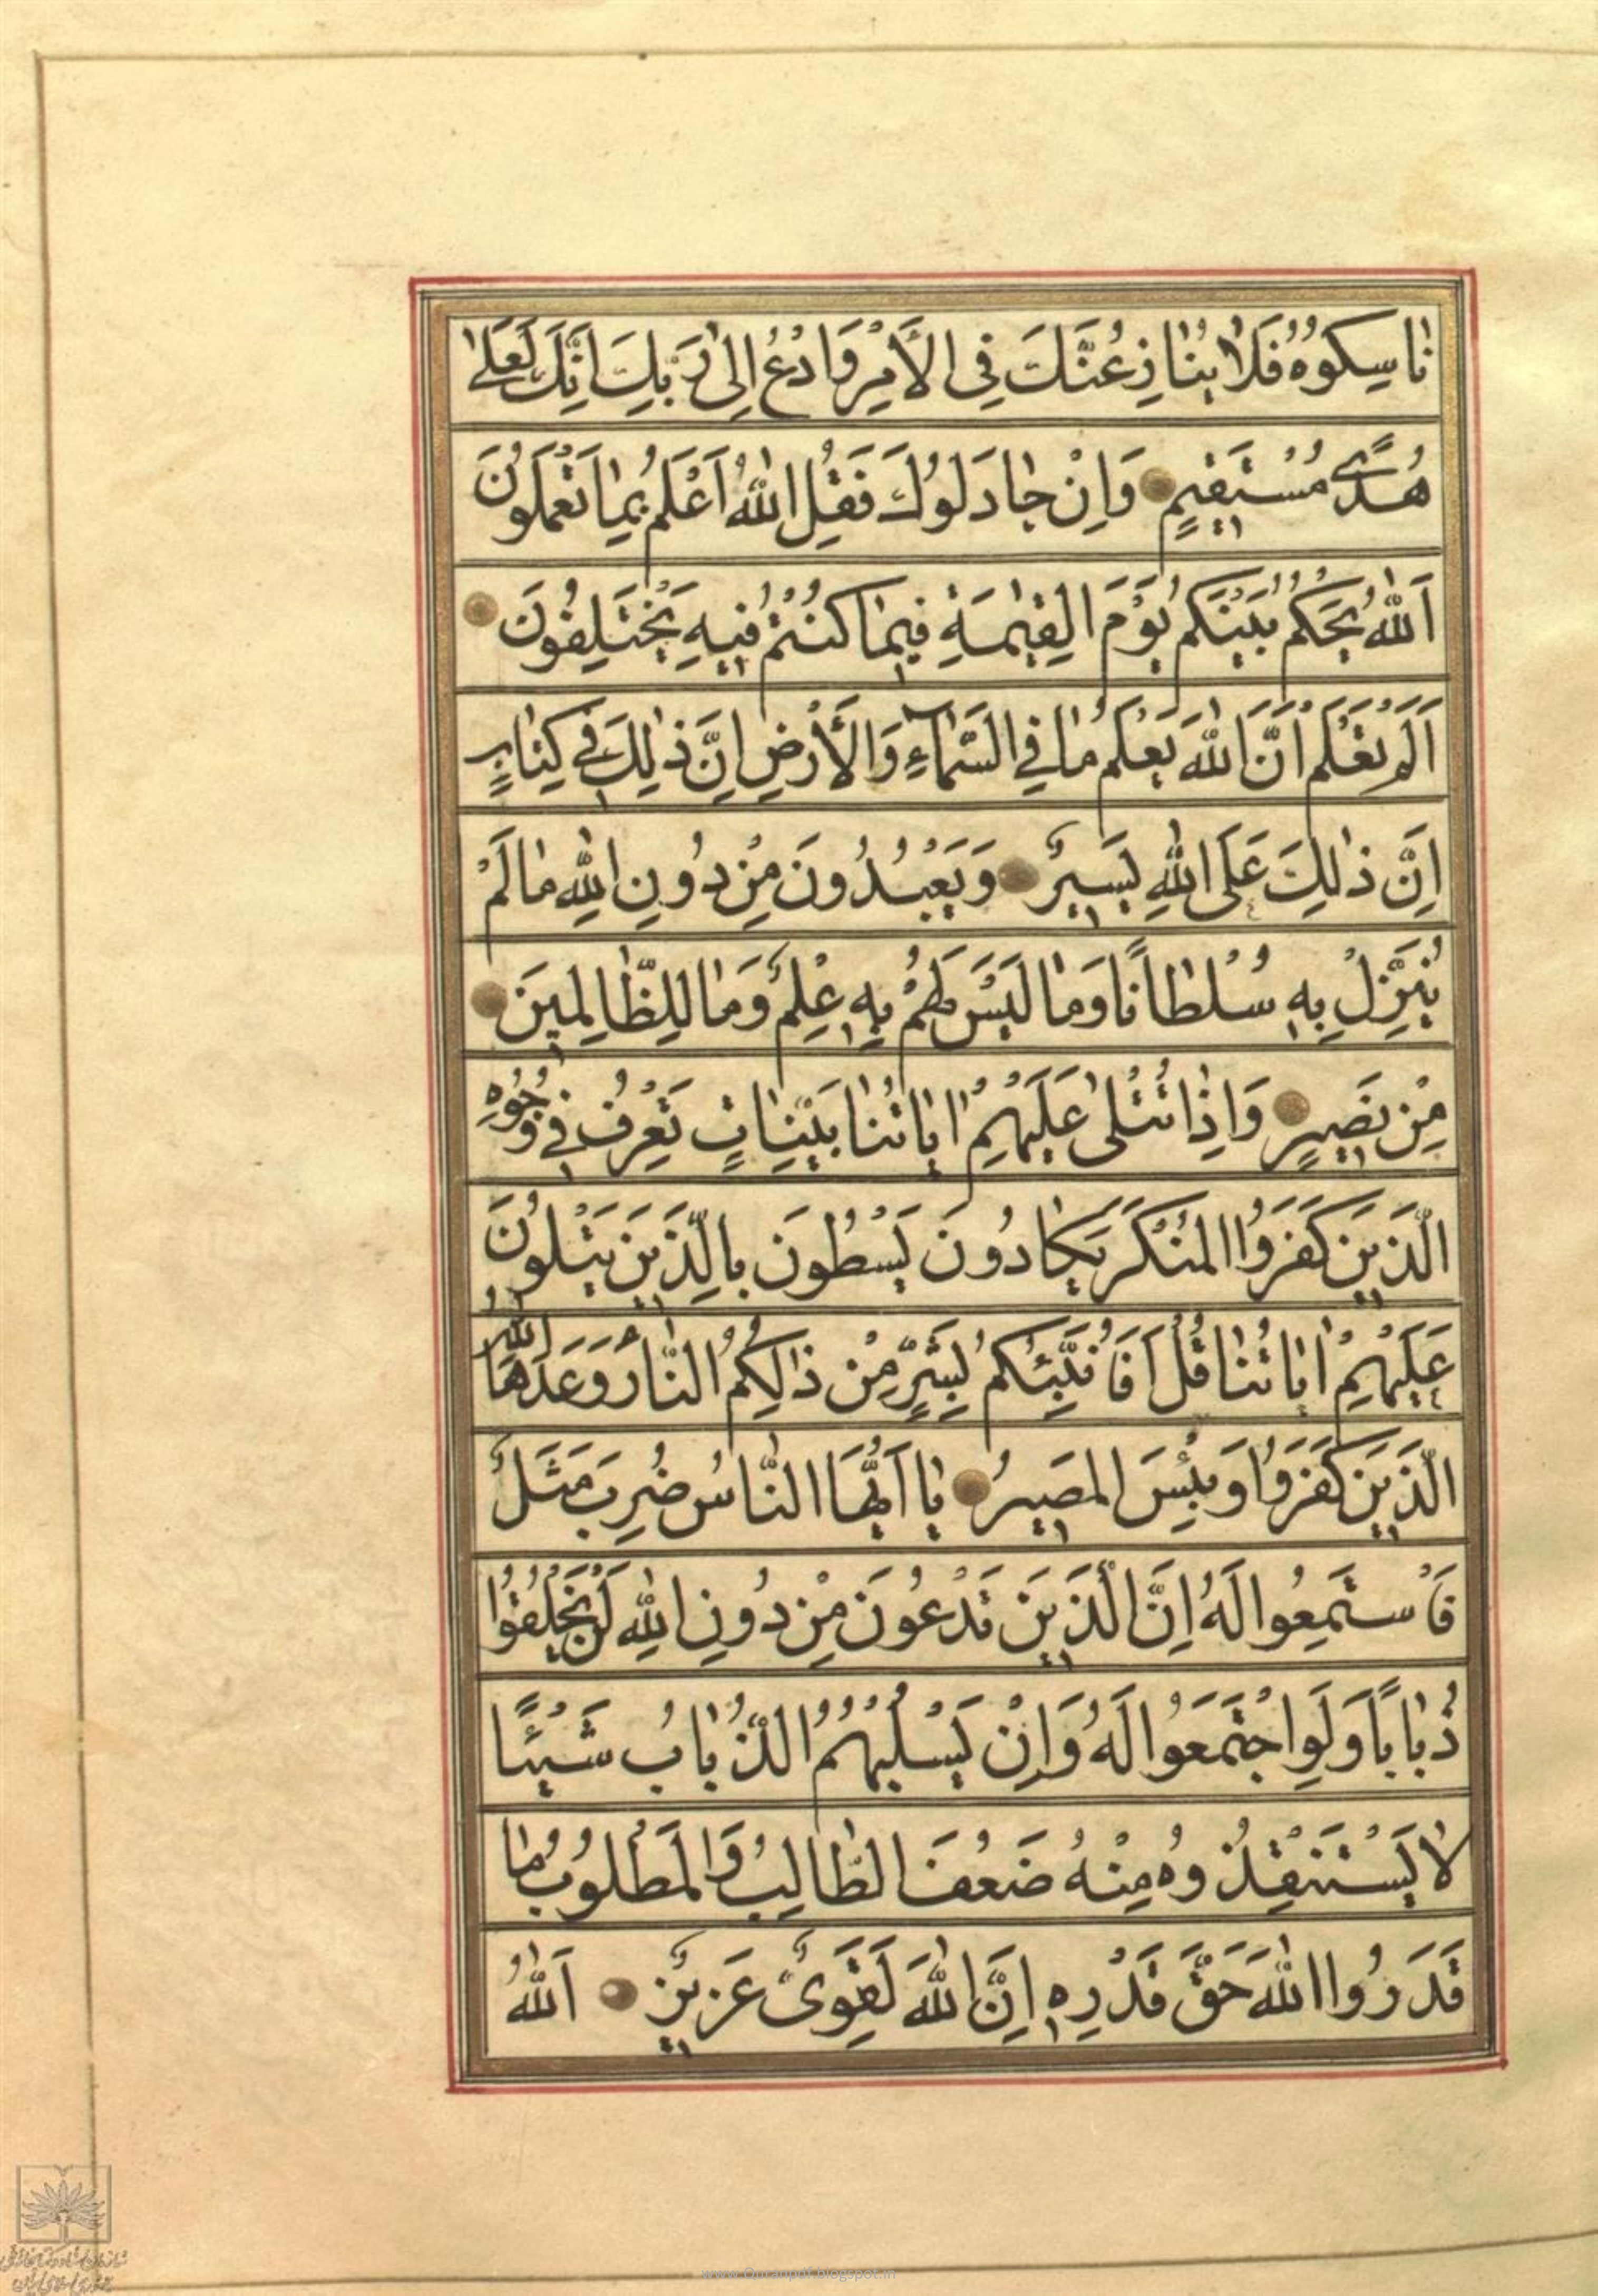 نٰاسِكُوهُ فَلٰا يُنٰازِعُنَّكَ فِى الْأَمْرِ وَادْعُ اِلىٰ رَبِّكَ اِنَّكَ لَعَلىٰ
هُدًى مُسْتَقيمٍ وَاِنْ جٰادَلُوكَ فَقُلِ اللّٰهُ اَعْلَمُ بِمٰا تَعْمَلُونَ
اَللّٰهُ يَحْكُمُ بَيْنَكُمْ يَوْمَ الْقِيٰمَةِ فيمٰا كُنْتُمْ فيهِ تَخْتَلِفُونَ
اَلَمْ تَعْلَمْ اَنَّ اللّٰهَ يَعْلَمُ مٰا فِي السَّمٰاءِ وَالْأَرْضِ اِنَّ ذٰلِكَ في كِتٰابٍ
اِنَّ ذٰلِكَ عَلَى اللّٰهِ يَسيرٌ وَيَعْبُدُونَ مِنْ دُونِ اللّٰهِ مٰا لَمْ
يُنَزِّلْ بِهِ سُلْطٰانًا وَمٰا لَيْسَ لَهُمْ بِهِ عِلْمٌ وَمٰا لِلظّٰالِمينَ
مِنْ نَصيرٍ وَاِذٰا تُتْلىٰ عَلَيْهِمْ اٰيٰاتُنٰا بَيِّنٰاتٍ تَعْرِفُ في وُجُوهِ
الَّذينَ كَفَرُوا الْمُنْكَرَ يَكٰادُونَ يَسْطُونَ بِالَّذينَ يَتْلُونَ
عَلَيْهِمْ اٰيٰاتُنٰا قُلْ اَفَاُنَبِّئُكُمْ بِشَرٍّ مِنْ ذٰلِكُمُ النّٰارُ وَعَدَهَا اللّٰهُ
الَّذينَ كَفَرُوا وَبِئْسَ الْمَصيرُ يٰا اَيُّهَا النّٰاسُ ضُرِبَ مَثَلٌ
فَاسْتَمِعُوا لَهُ اِنَّ الَّذينَ تَدْعُونَ مِنْ دُونِ اللّٰهِ لَنْ يَخْلُقُوا
ذُبٰابًا وَلَوِ اجْتَمَعُوا لَهُ وَاِنْ يَسْلُبْهُمُ الذُّبٰابُ شَيْئًا
لٰا يَسْتَنْقِذُوهُ مِنْهُ ضَعُفَ الطّٰالِبُ وَالْمَطْلُوبُ مٰا
قَدَرُوا اللّٰهَ حَقَّ قَدْرِهِ اِنَّ اللّٰهَ لَقَوِىٌّ عَزيزٌ اَللّٰهُ
www.Quranpdf.blogspot.in